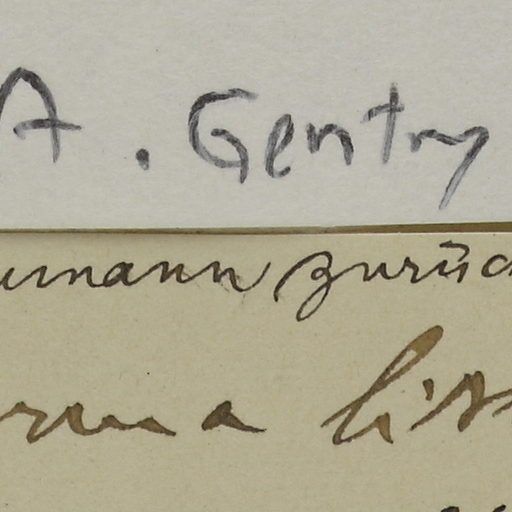 A. Gentry
umann zurüc
rma lit